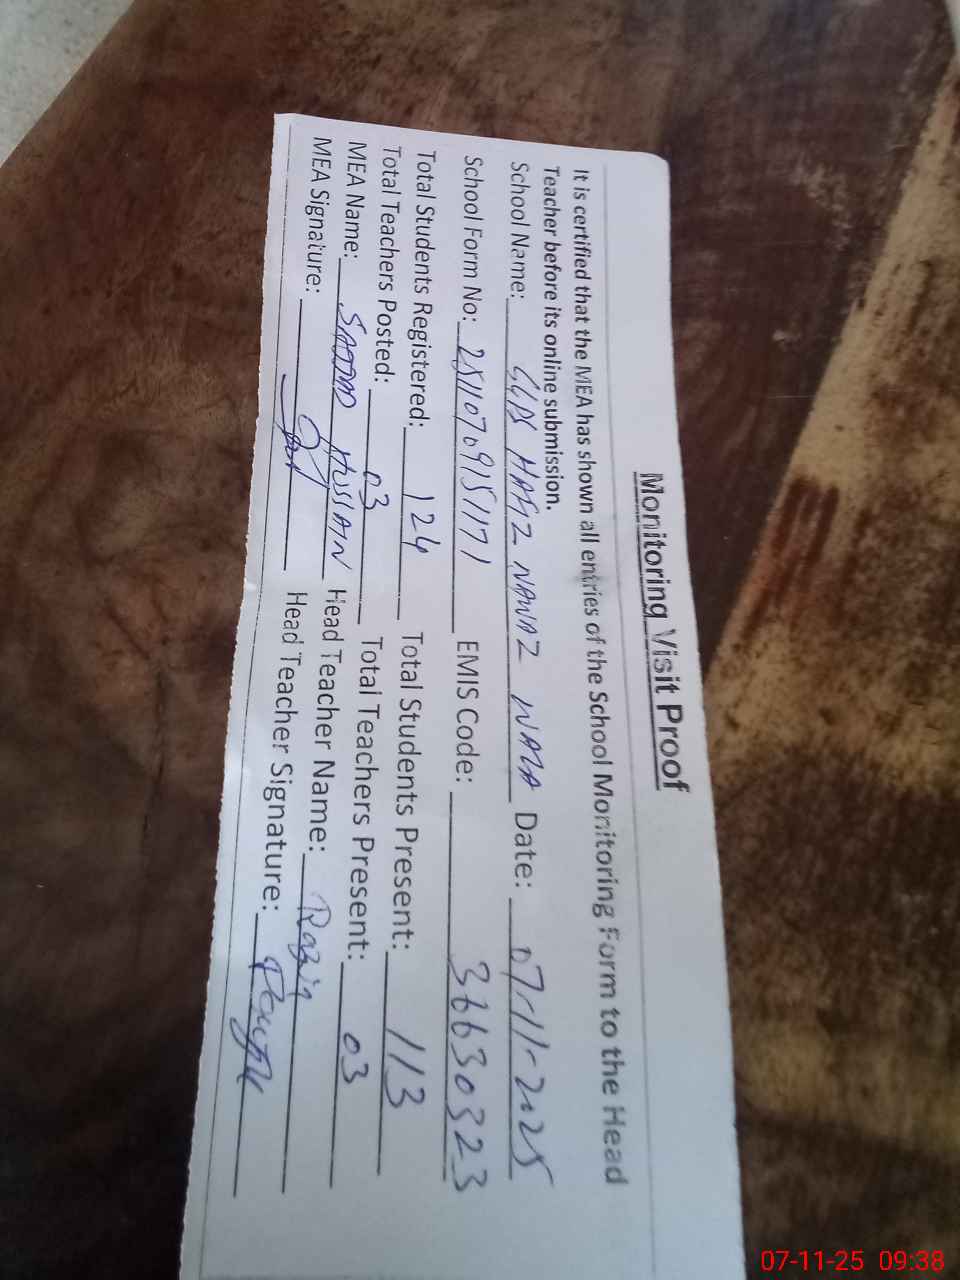 Monitoring Visit Proof
It is certified that the MEA has shown all entries of the School Monitoring Form to the Head
Teacher before its online submission.
School Name: HAFIZ NAWAZ WALA Date: 07-11-2025
School Form No: 2511070915117 1 EMIS Code: 36630323
Total Students Registered: 124 Total Students Present: 113
Total Teachers Posted: 03 Total Teachers Present: 03
MEA Name: HUSSAIN Head Teacher Name:
MEA Signature: Head Teacher Signature:
07-11-25 09:38